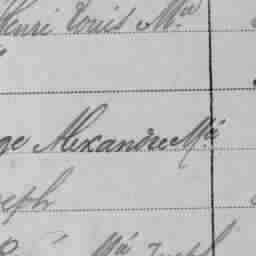 Henri Louis M.ie
ge Alexandre M.ie
seph
M.ie Joseph